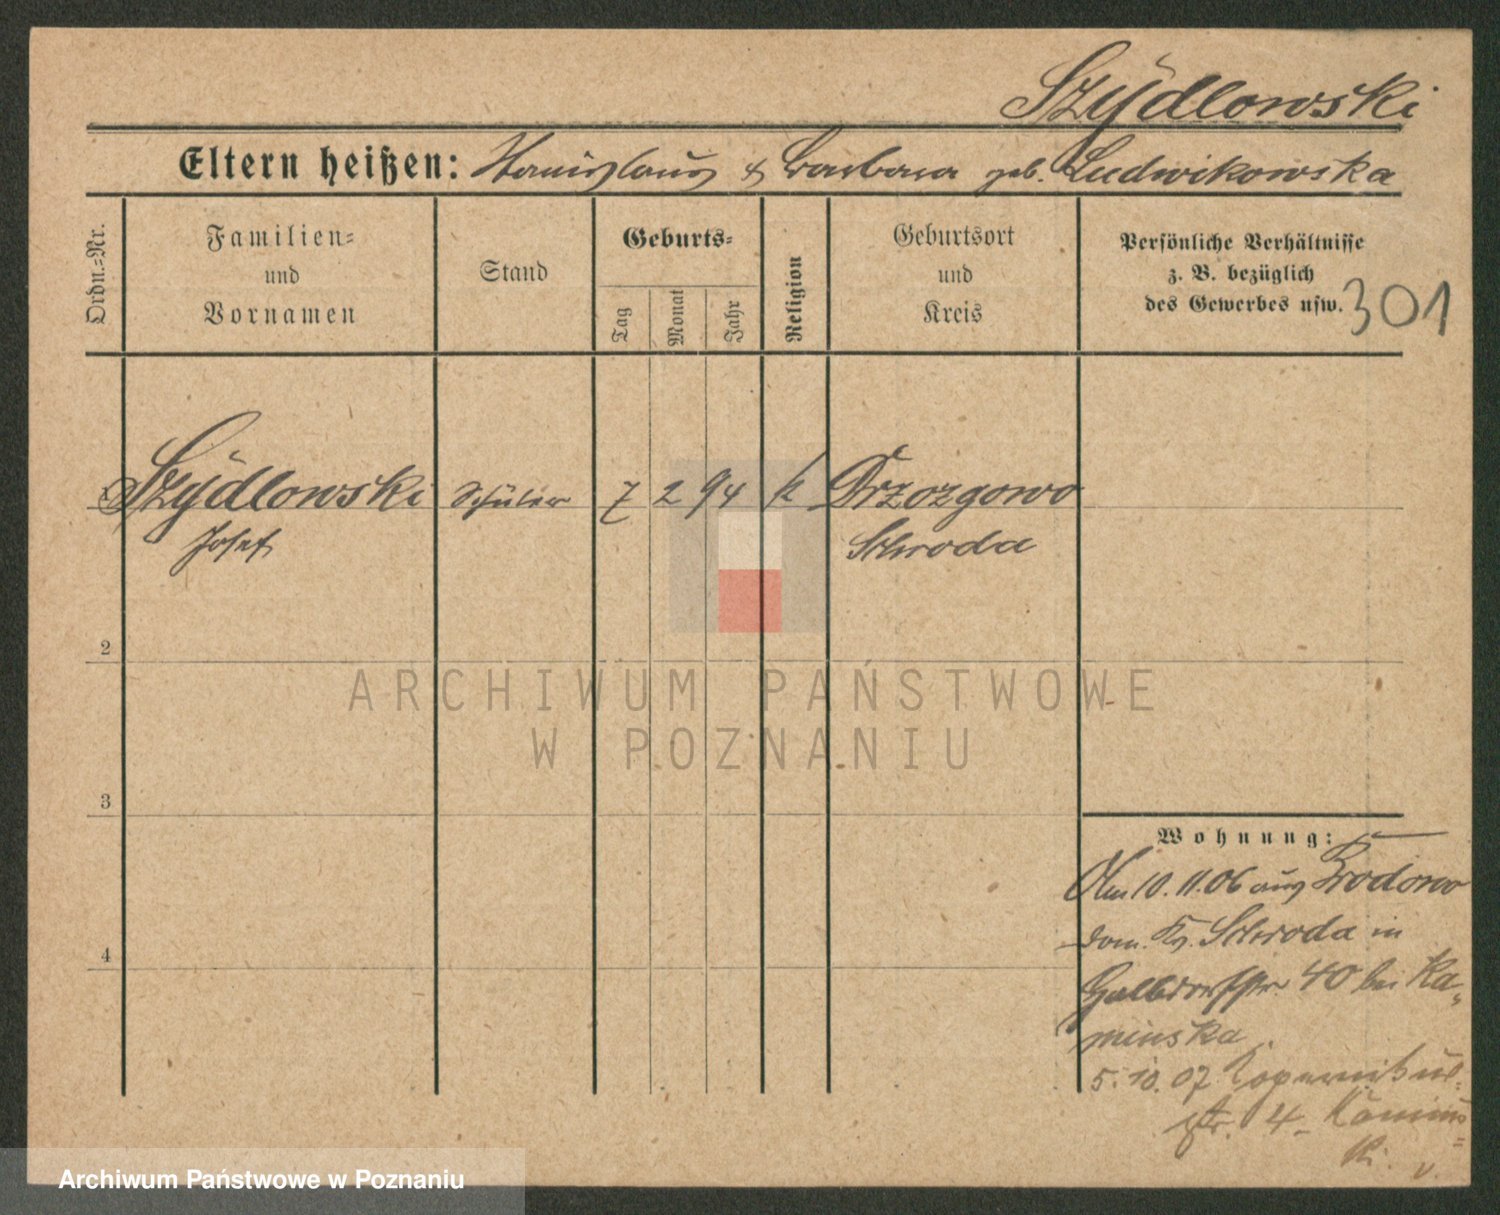 Szydlowski
Eltern heißen: Stanislaus & Barbara geb. Ludwikowska
Ordn.-Nr.
Familien-
und
Vornamen
Stand
Geburts-
Tag
Monat
Jahr
Religion
Geburtsort
und
Kreis
Persönliche Verhältnisse
z. B. bezüglich
des Gewerbes usw.
301
Szydlowski Schüler 7 2 94 k Brzozgowo
Josef Schroda
2
3
4
Wohnung:
Am 10.11.06 aus Brodowo
dom. Kr. Schroda in
Halbdorfstr. 40 bei Ka-
minska
5.10.07 Kopernikus-
str. 4 Kamins-
ki.
ARCHIWUM PAŃSTWOWE
W POZNANIU
Archiwum Państwowe w Poznaniu